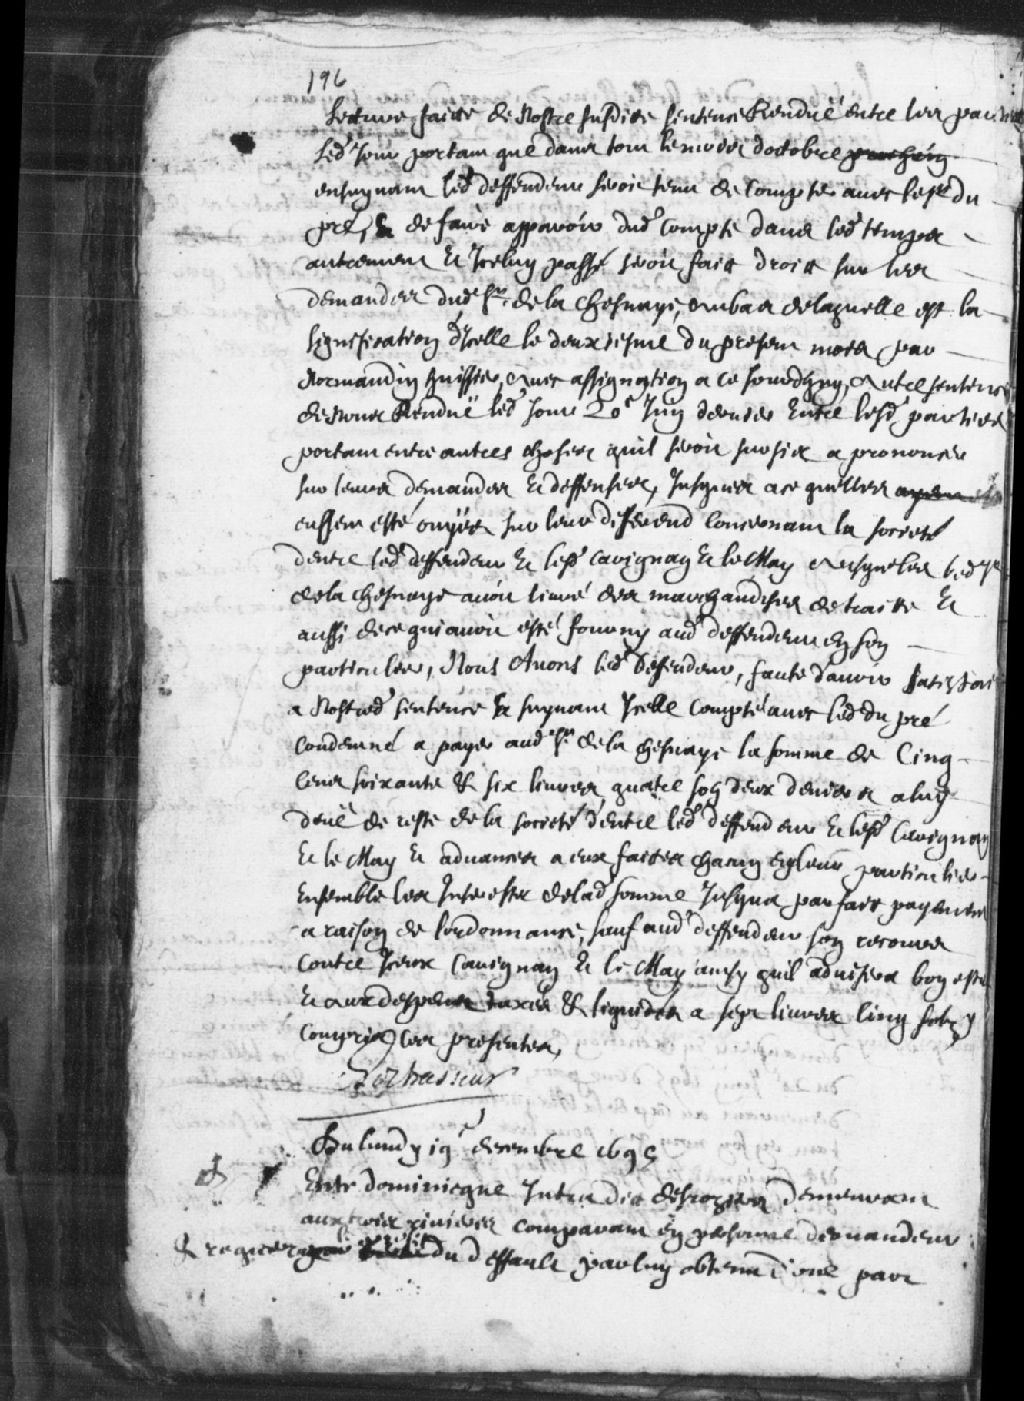 196
Lecture faite de Nostre susdite sentence Rendüe entre les parties
led' jour portant que dans tout le mois doctobre prochain
ensuyvant led' deffendeur seroit tenu de compter avec les du
pré, & de faire apparoir dud' compte dans led' temps
autrement et Iceluy passé seroit fait droit sur les
demandes dud' sr. de la chesnaye, au bas de laquelle est la
signification d'Icelle le deuxiesme du present mois par
Normandin huissier, avec assignation a ce jourdhuy, Autre sentence
de nous Rendüe led' jour 20e Juin dernier Entre lesd' parties
portant entre autres choses quil seroit sursis a prononcer
sur leurs demandes et deffenses, Jusques a ce quelles
eussent esté ouÿes sur leur different concernant la societé
dentre led' deffendeur et les Cavignay et le May Ausquels led' sr
de la chesnaye avoit livré des marchandises de traitte et
aussi de ce qui avoit esté fourny aud' deffendeur en son
particulier, Nous Avons led' defendeur, faute davoir satisfait
a Nostred' sentence & suyvant Icelle compté avec led' du pré
condemné a payer aud' sr. de la chesnaye la somme de Cinq
Cens soixante & six livres quatre sols deux deniers a luy
deüe de reste de la societé d'entre led' deffendeur et les Cavignay
et le May et advances a eux faites chacun en leur particulier
Ensemble les Interests de lad' somme Jusqua parfait payement
a raison de l'ordonnance, sauf aud' deffendeur son recours
contre Iceux Cavignay et le May ainsy quil advisera bon estre
et aux despens taxés & liquidés a sept livres cinq sols y
compris ces presentes,

Du lundy 19e decembre 1695
Entre dominicque Jutra dit desrosiers demeurant
aux trois rivieres comparant en personne demandeur
du deffault par luy obtenu d'une part